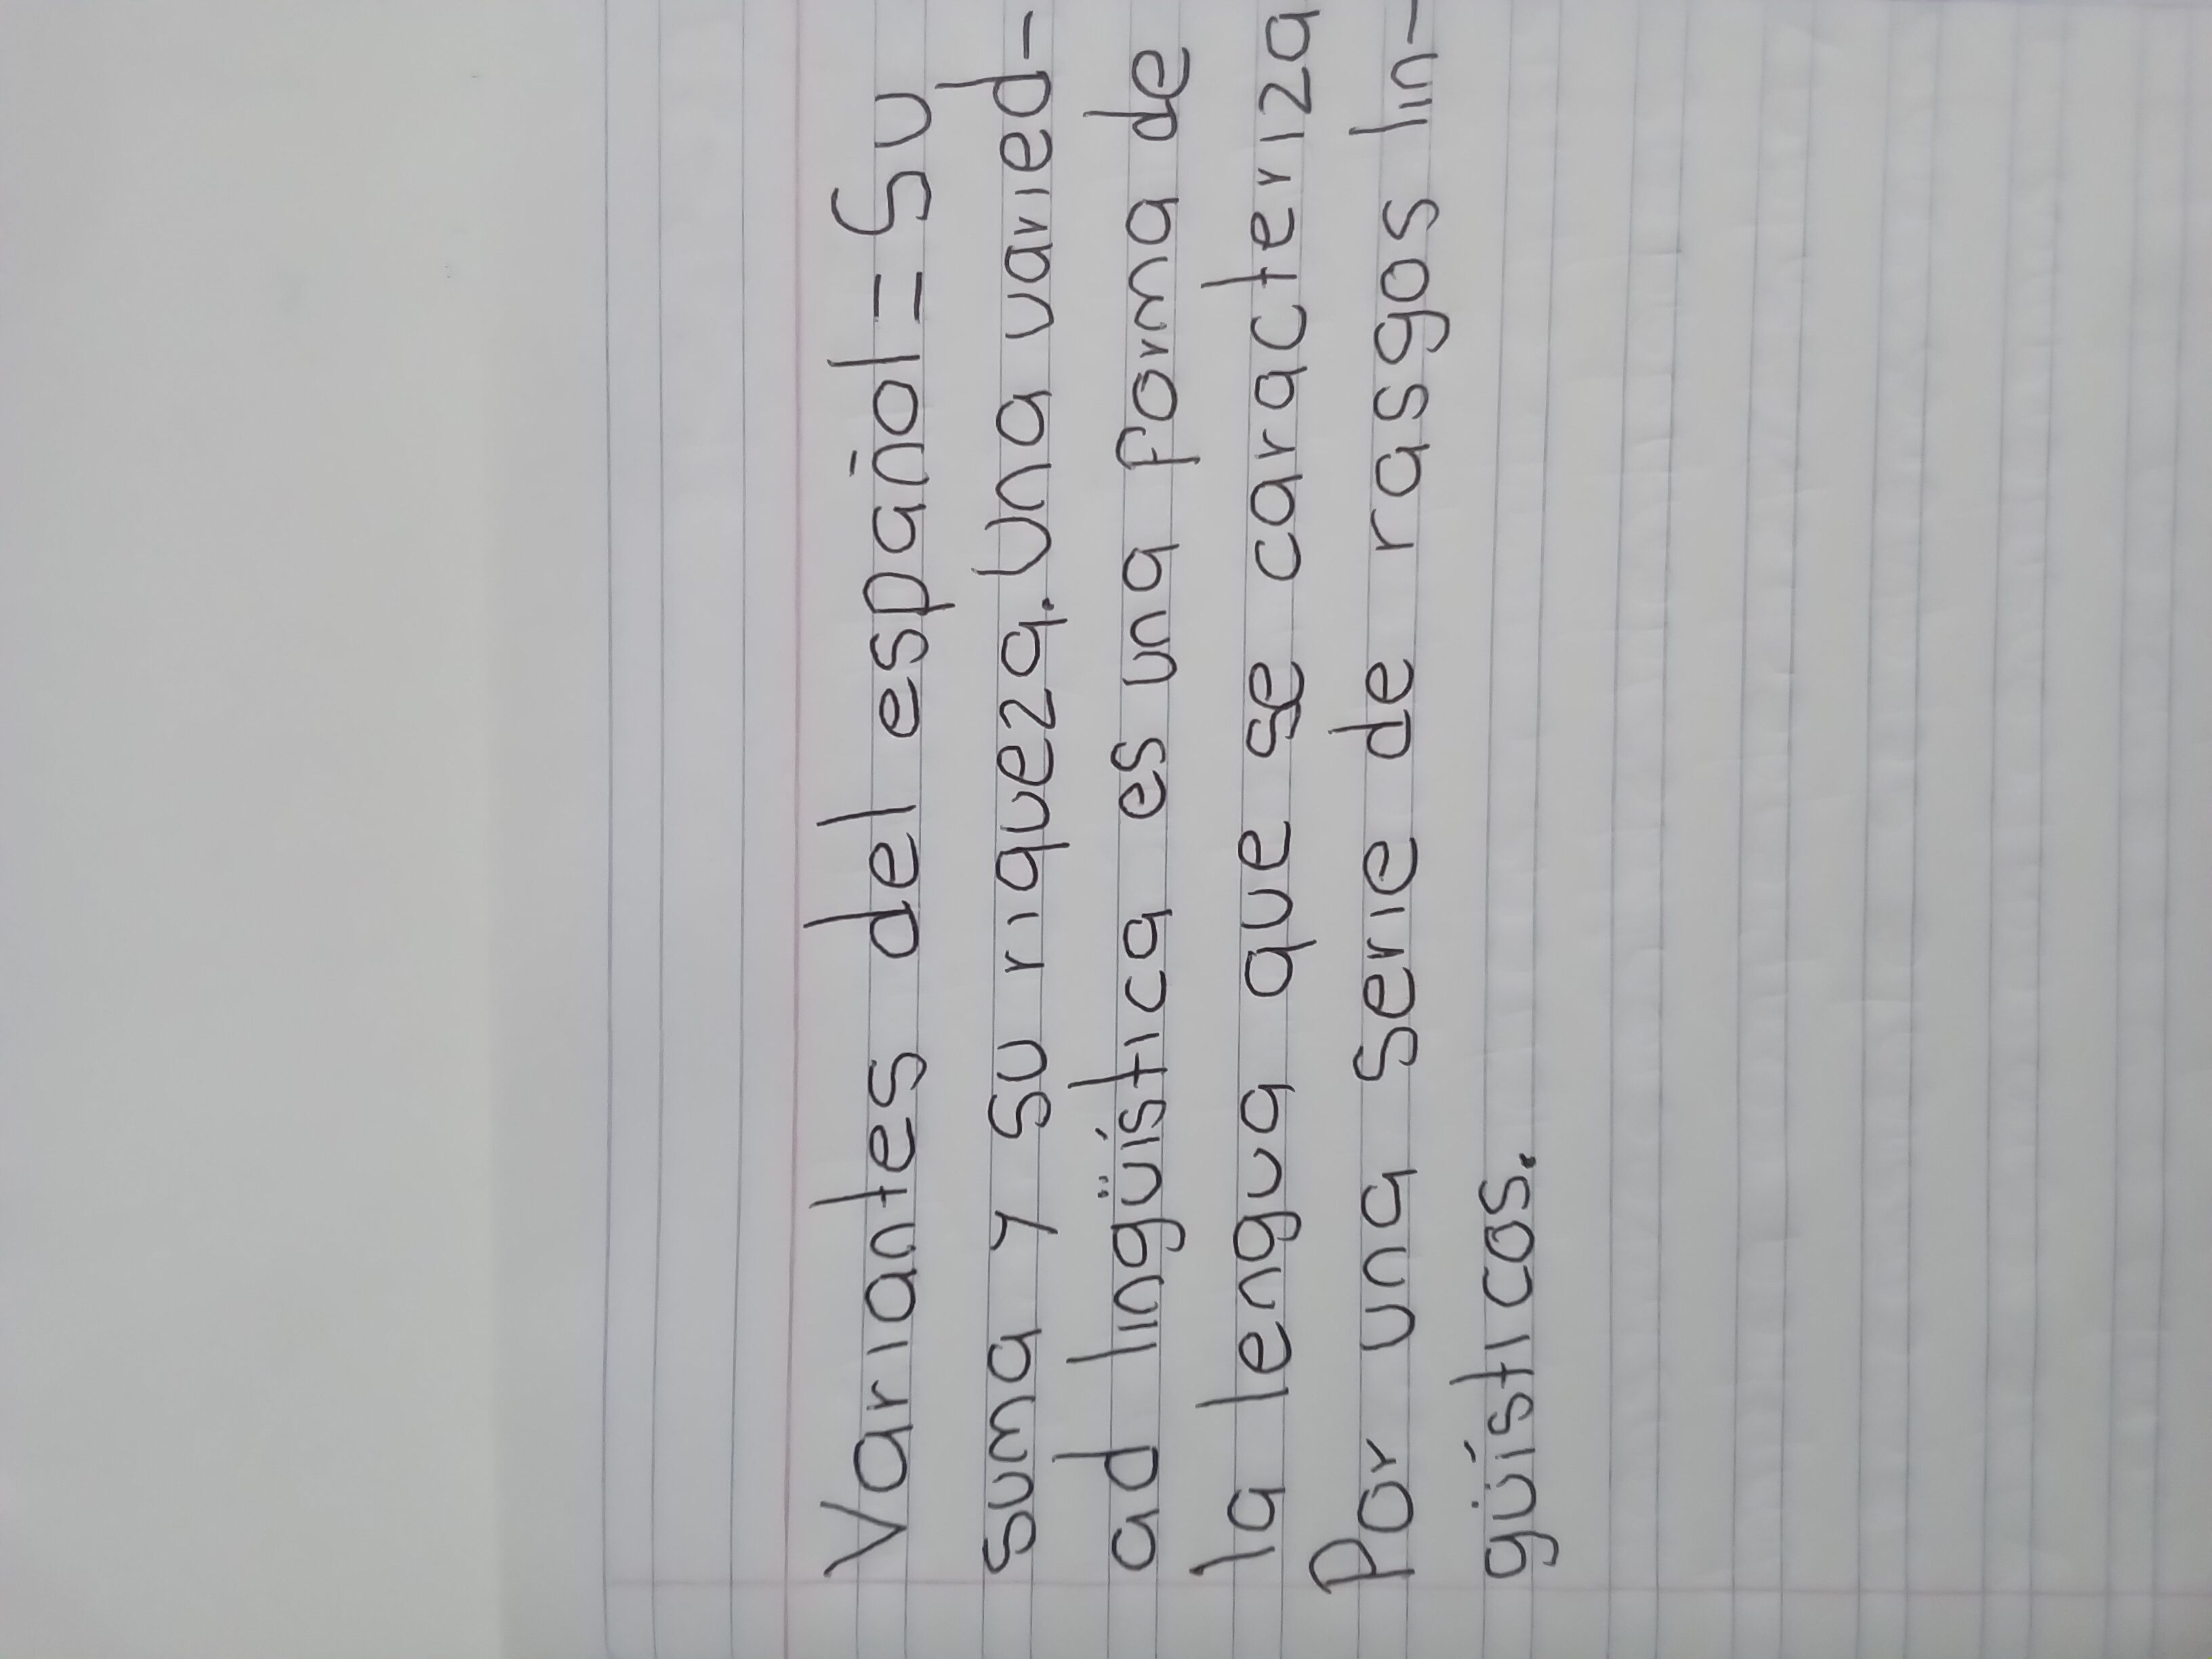 Variantes del español = Su
suma y su riqueza. Una varied-
ad lingüística es una forma de
la lengua que se caracteriza
Por una serie de rasgos lin-
güísticos.